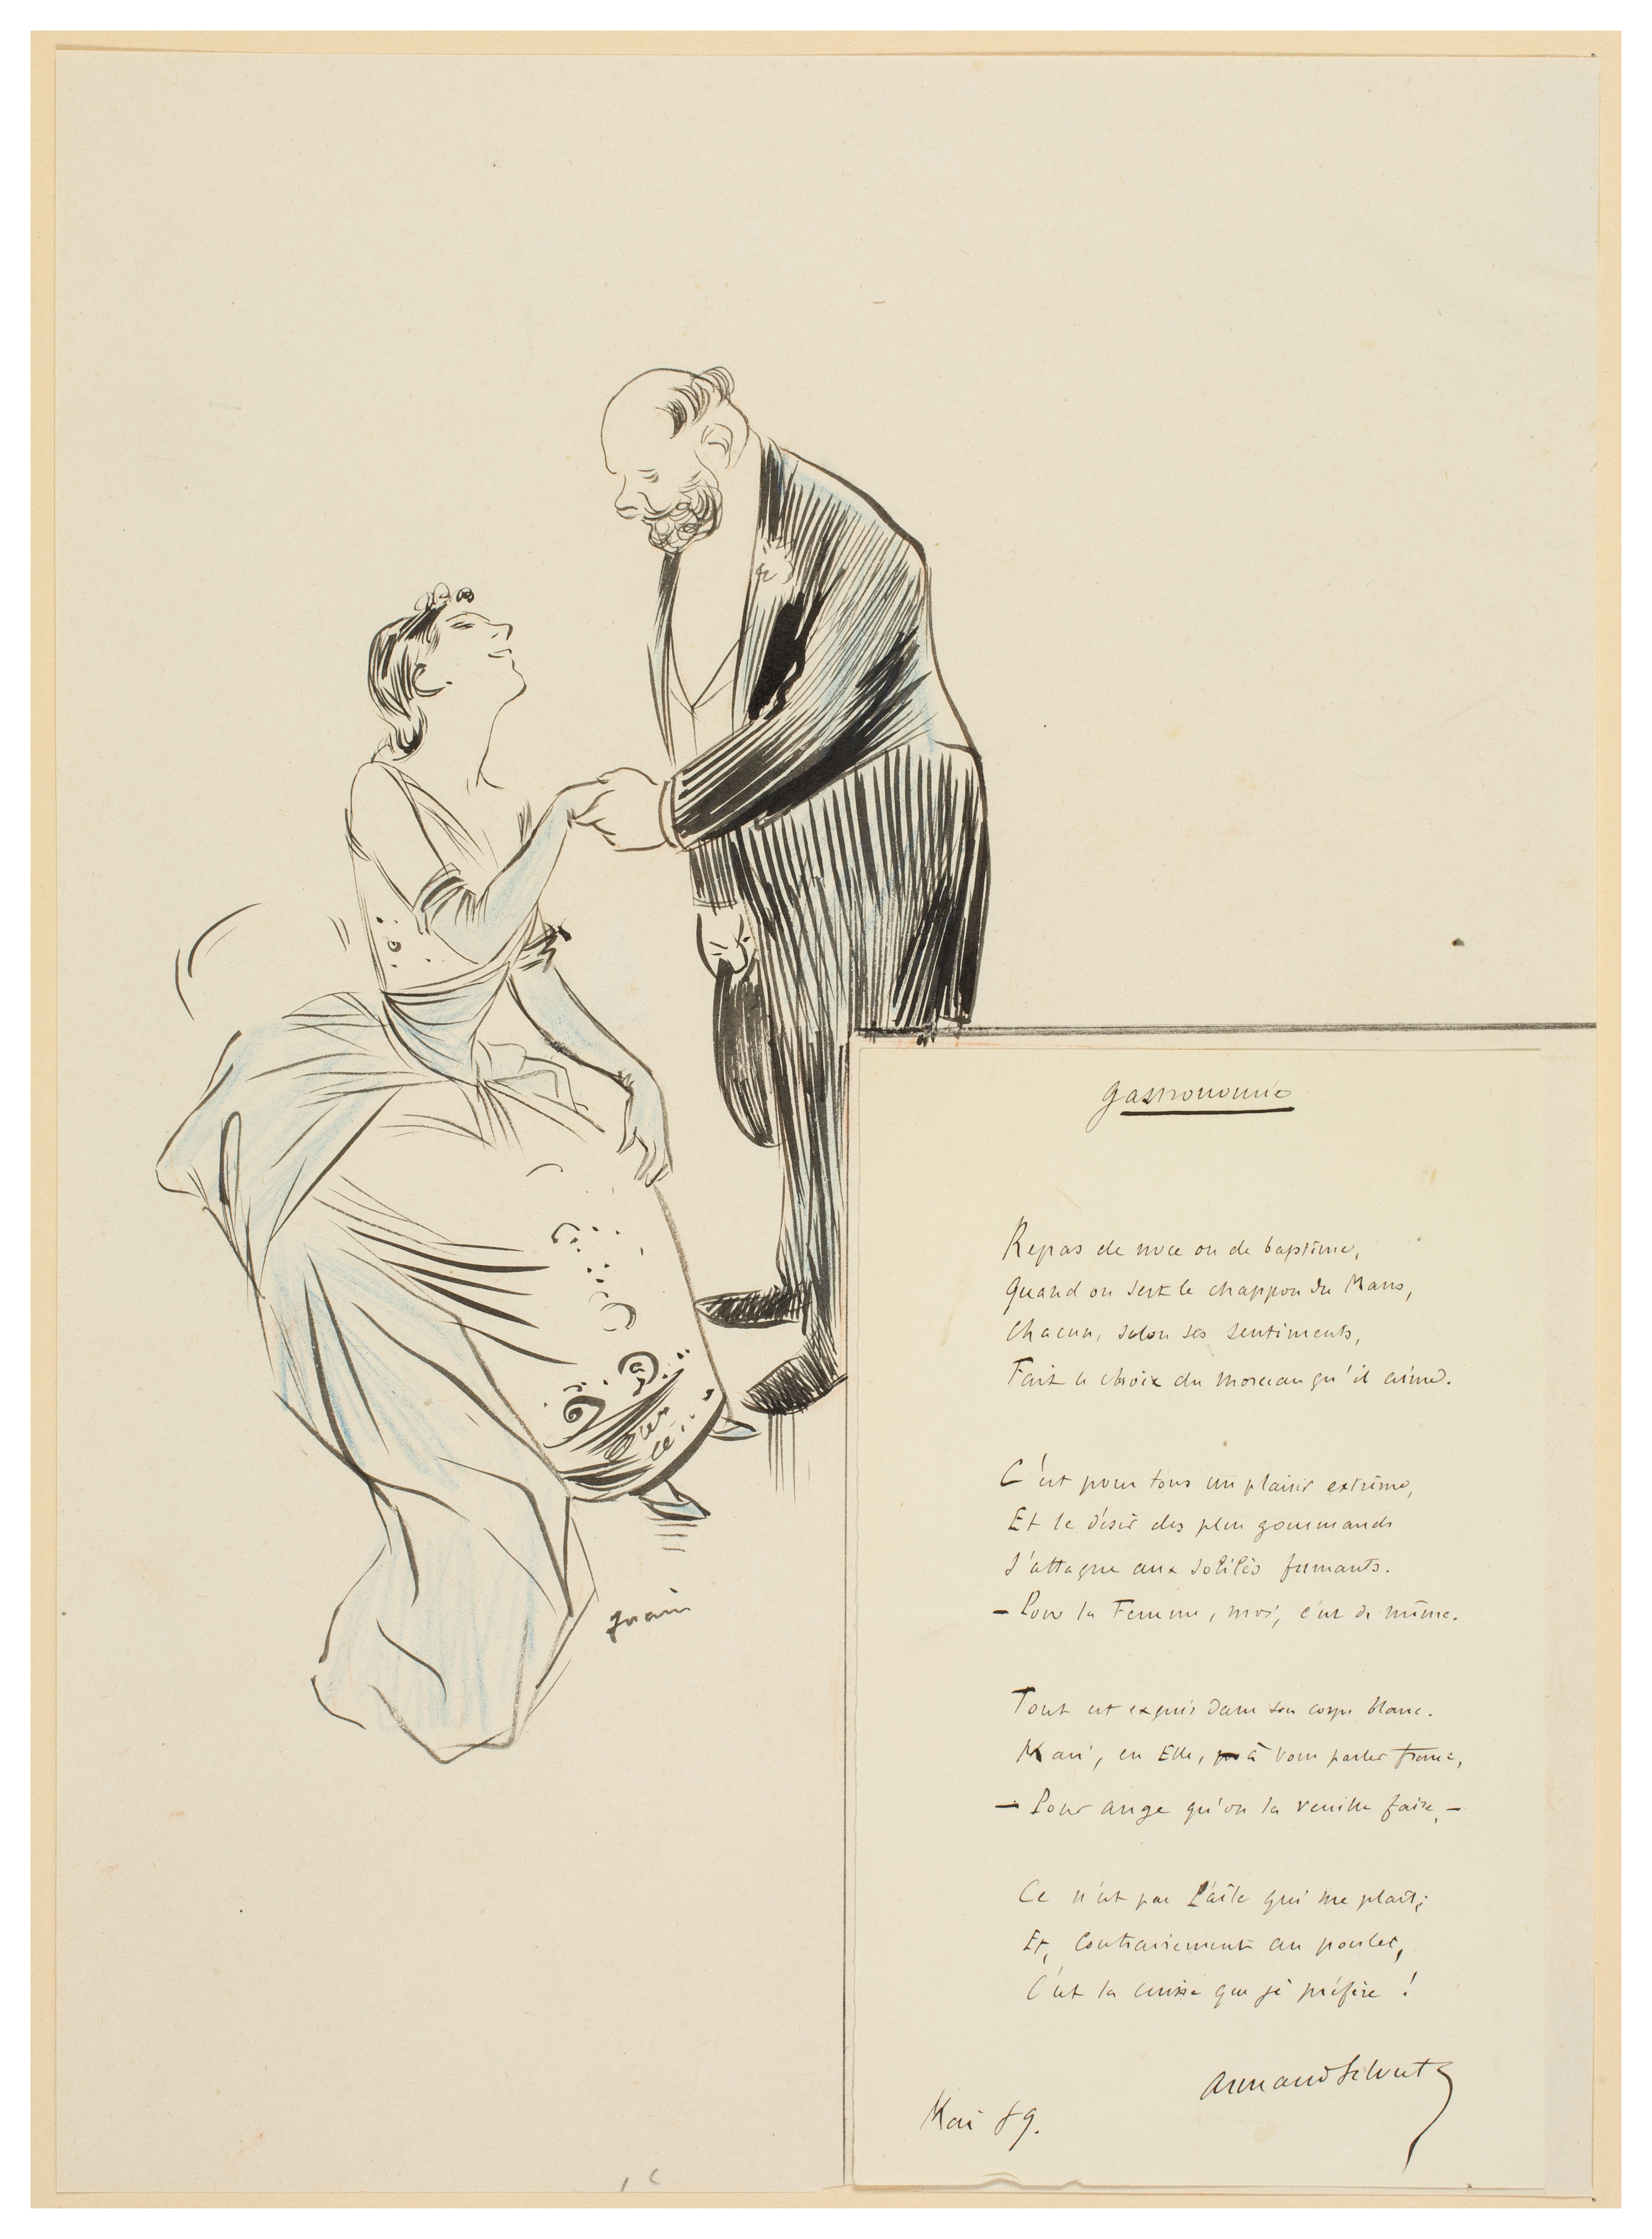 Gastronomie
Repas de noce ou de baptême,
Quand on sert le chappon du Mans,
Chacun, selon ses sentiments,
Fait le choix du morceau qu'il aime.
C'est pour tous un plaisir extrême,
Et le désir des plus gourmands
S'attaque aux sotilés fumants.
— Pour la Femme, moi, c'est de même.
Tout est exquis dans son corps blanc.
Mais, en Elle, à vous parler franc,
— Pour ange qu'on la veuille faire, —
Ce n'est pas l'aile qui me plait;
Et, contrairement au poulet,
C'est la cuisse que je préfère !
Armand Silvestre
Mai 89.
forain